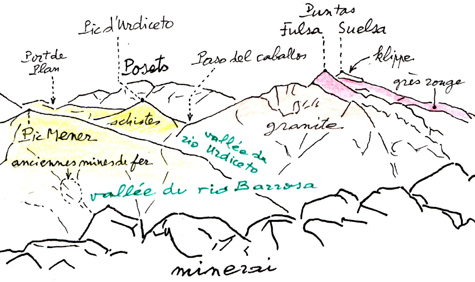 Pic d'Urdiceto
Puntas
Fulsa Suelsa
Port de
Plan
Posets
Paso del caballos
klippe
grès rouge
Pic Mener
schistes
granite
vallée du
rio Urdiceto
anciennes mines de fer
vallée du rio Barrosa
minerai